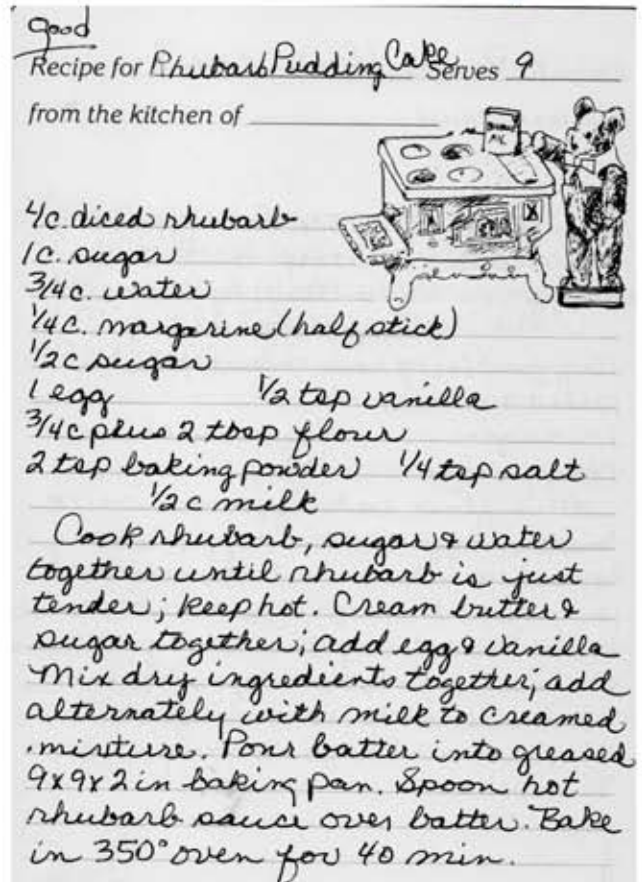 good
Recipe for Rhubarb Pudding Cake Serves 9
from the kitchen of
4 c. diced rhubarb
1 c. sugar
3/4 c. water
1/4 c. margarine (half stick)
1/2 c sugar
1 egg 1/2 tsp vanilla
3/4 c plus 2 tbsp flour
2 tsp baking powder 1/4 tsp salt
1/2 c milk
Cook rhubarb, sugar & water
together until rhubarb is just
tender; keep hot. Cream butter &
sugar together; add egg & vanilla
Mix dry ingredients together; add
alternately with milk to creamed
mixture. Pour batter into greased
9x9x2 in baking pan. Spoon hot
rhubarb sauce over batter. Bake
in 350° oven for 40 min.